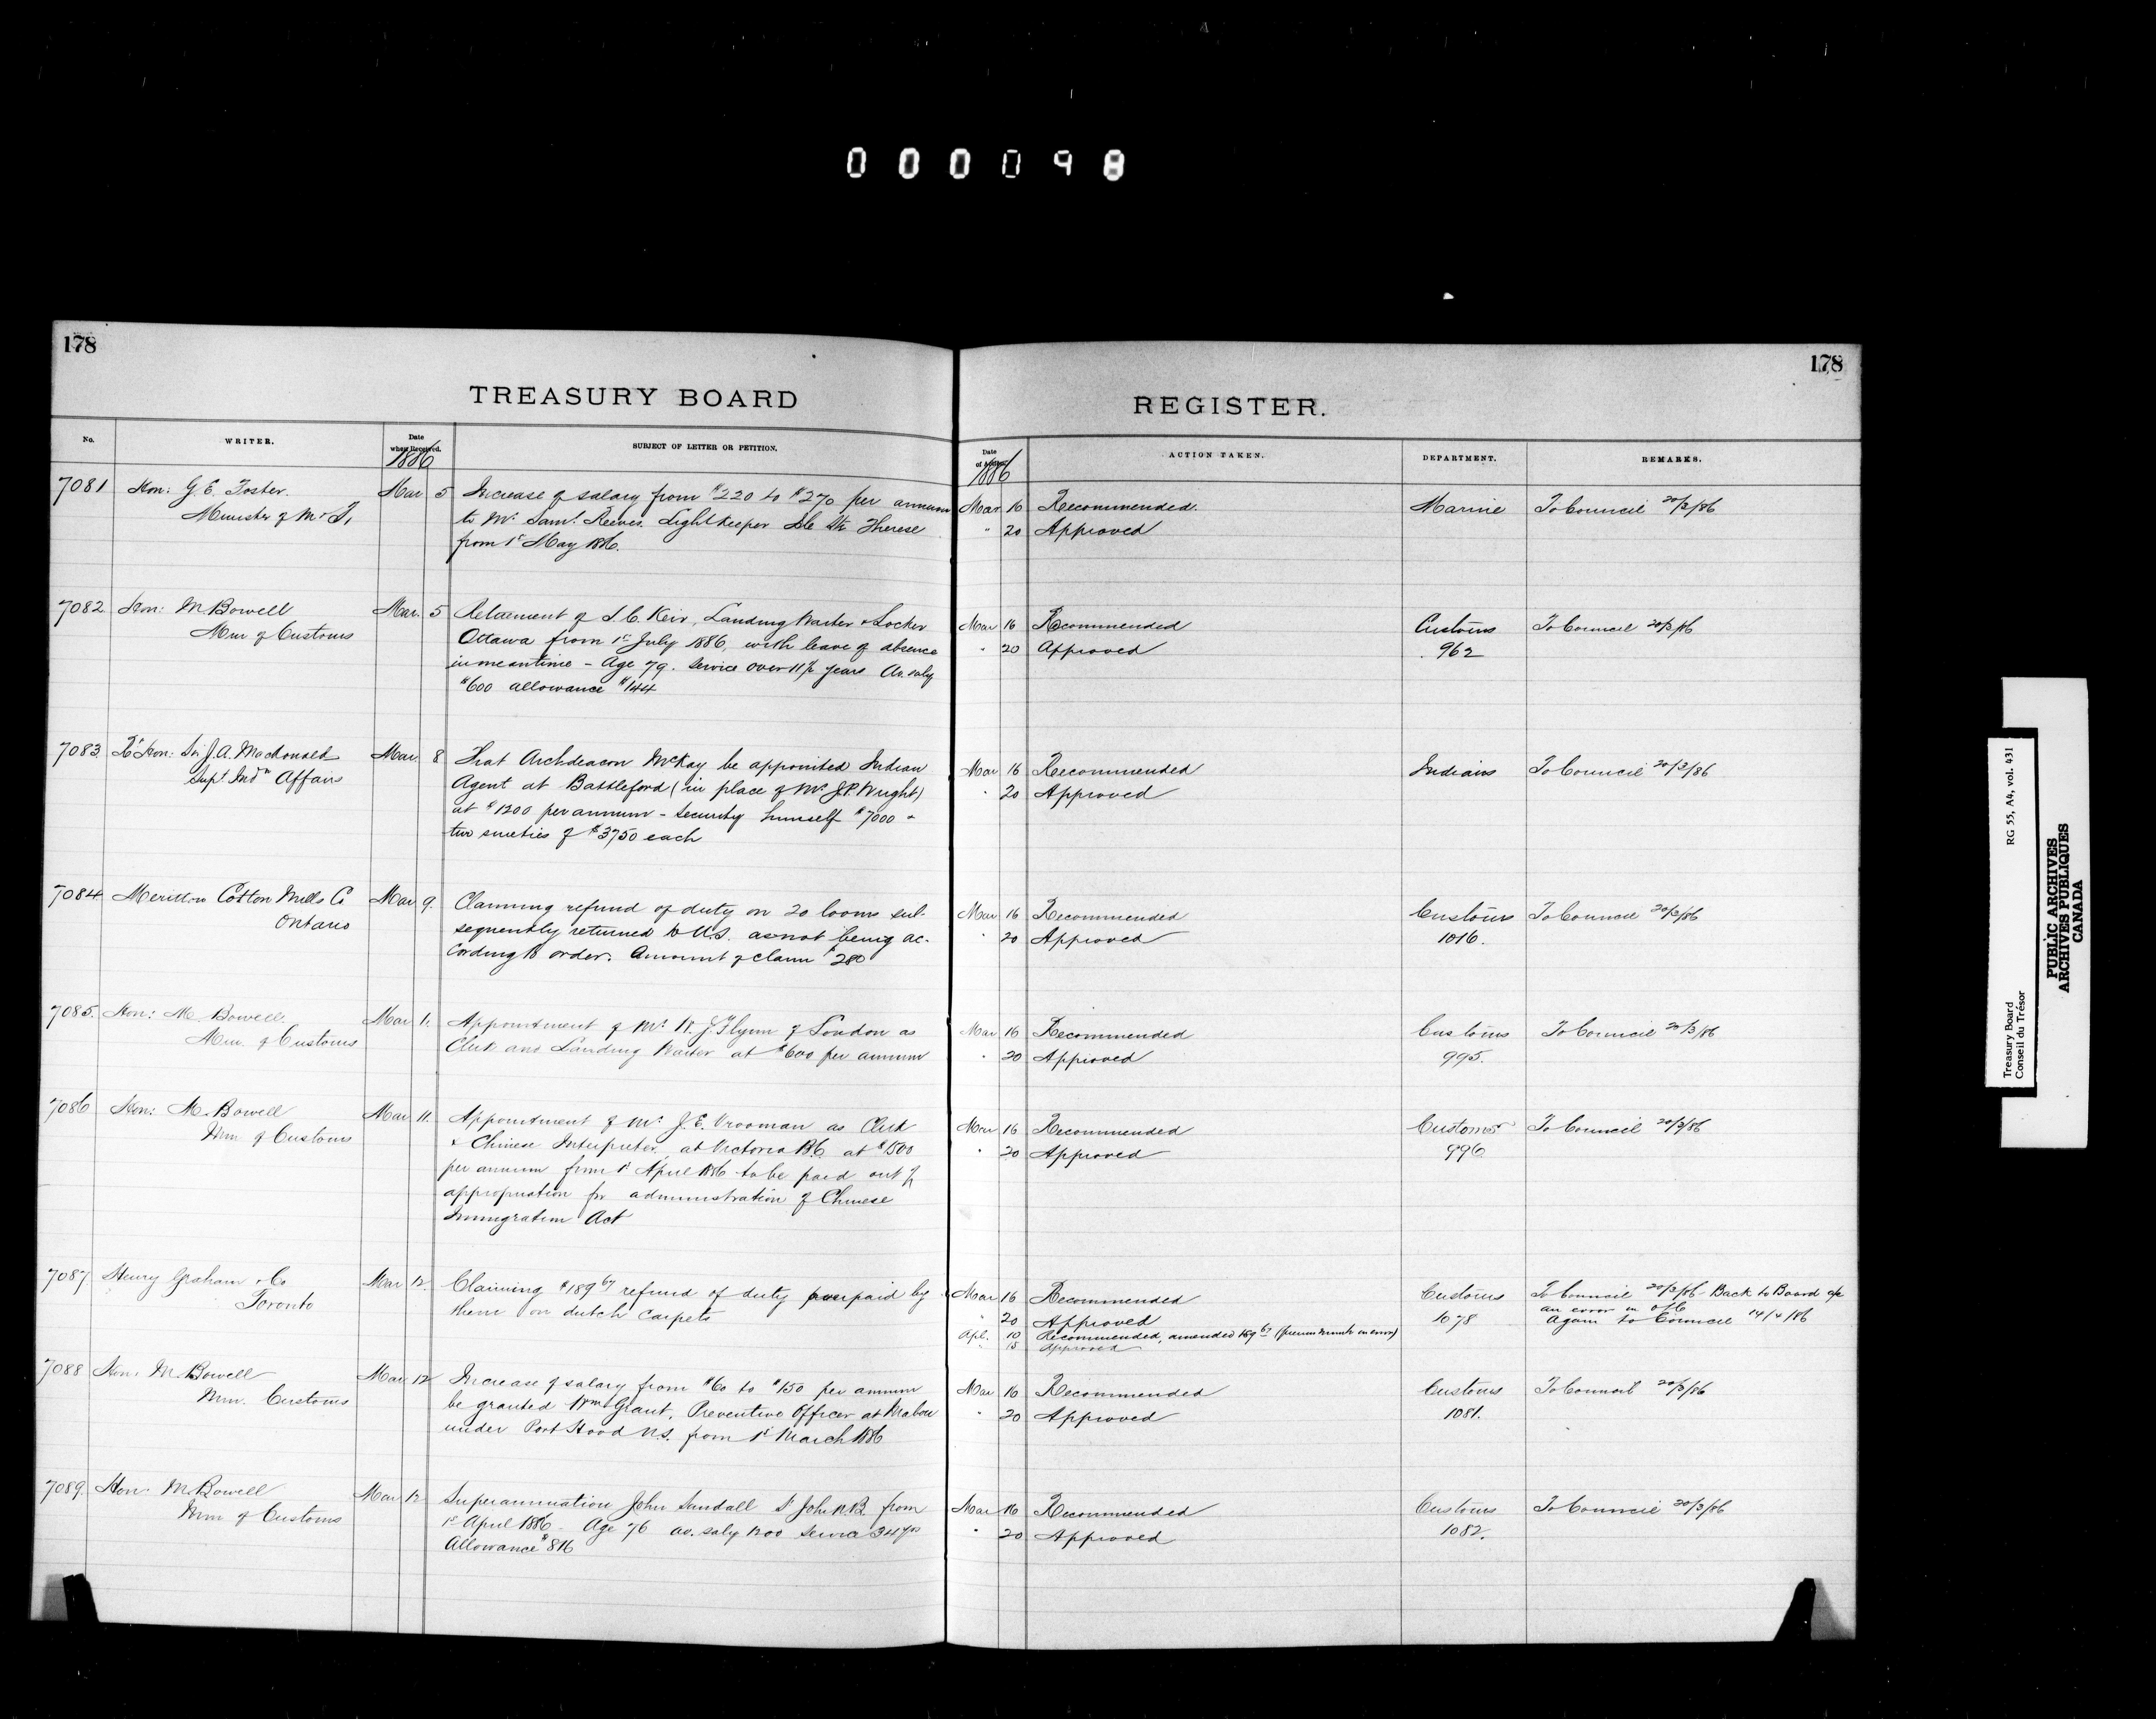 000098
178
178
TREASURY BOARD
REGISTER.
No.
WRITER.
Date
when Received.
1886
SUBJECT OF LETTER OR PETITION.
Date
1886
ACTION TAKEN.
DEPARTMENT.
REMARKS.
7081 Hon: G. E. Foster. Mar 5 Increase of salary from $220 to $270 per annum Mar 16 Recommended. Marine To Council 20/3/86
Minister of M & F. to Mr Saml. Reeves. Lightkeeper Ile Ste Therese " 20 Approved
from 1st May 1886.
7082 Hon: M. Bowell Mar. 5 Retirement of J. C. Keir, Landing Waiter & Locker Mar 16 Recommended Customs To Council 20/3/86
Min of Customs Ottawa from 1st July 1886, with leave of absence " 20 Approved 962
in meantime - Age 79. Service over 11 1/2 years Av. saly
$600 allowance $144
7083 Rt Hon: Sir J. A. Macdonald Mar. 8 That Archdeacon McKay be appointed Indian Mar 16 Recommended Indians To Council 20/3/86
Supt Indn Affairs Agent at Battleford (in place of Mr J. P. Wright) " 20 Approved
at $1200 per annum - Security himself $7000 &
two sureties of $3750 each
7084 Merritton Cotton Mills Co Mar 9. Claiming refund of duty on 20 looms sub- Mar 16 Recommended Customs To Council 20/3/86
Ontario sequently returned to U.S. as not being ac- " 20 Approved 1016.
cording to order. Amount of claim $280
7085. Hon: M. Bowell. Mar 11. Appointment of Mr J. Flynn of London as Mar 16 Recommended Customs To Council 20/3/86
Min. of Customs Clerk and Landing Waiter at $600 per annum " 20 Approved 995.
7086 Hon: M. Bowell Mar 11. Appointment of Mr J. E. Vrooman as Clerk Mar 16 Recommended Customs To Council 20/3/86
Min of Customs & Chinese Interpreter, at Victoria B.C. at $1500 " 20 Approved 996
per annum from 1st April 1886 to be paid out of
appropriation for administration of Chinese
Immigration Act
7087 Henry Graham & Co Mar 12. Claiming $189 67 refund of duty overpaid by Mar 16 Recommended Customs To Council 20/3/86 - Back to Board
Toronto them on dutch carpets " 20 Approved 1078 an error in O/C
Again to Council 14/4/86
Apl. 10 Recommended, amended 169 67 (previous minute in error)
" 15 Approved
7088 Hon. M. Bowell Mar 12 Increase of salary from $60 to $150 per annum Mar 16 Recommended Customs To Council 20/3/86
Min. Customs be granted Wm Grant, Preventive Officer at Mabou " 20 Approved 1081.
under Port Hood N.S. from 1st March 1886
7089. Hon. M. Bowell Mar 12 Superannuation John Sandall St John N.B. from Mar 16 Recommended Customs To Council 20/3/86
Min of Customs 1st April 1886 - Age 76 av. saly 1200 Service 34 yrs " 20 Approved 1082.
Allowance $816
Treasury Board RG 55, A4, vol. 431
Conseil du Trésor
PUBLIC ARCHIVES
ARCHIVES PUBLIQUES
CANADA